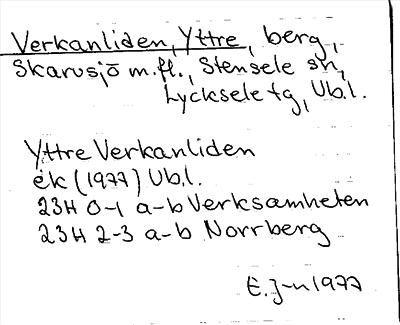 Verkanliden, Yttre, berg,
Skarvsjö m.fl., Stensele sn,
Lycksele tg, Vb.l.
Yttre Verkanliden
ek (1977) Vb.l.
23H 0-1 a-b Verksamheten
23H 2-3 a-b Norrberg
E.J-n 1977